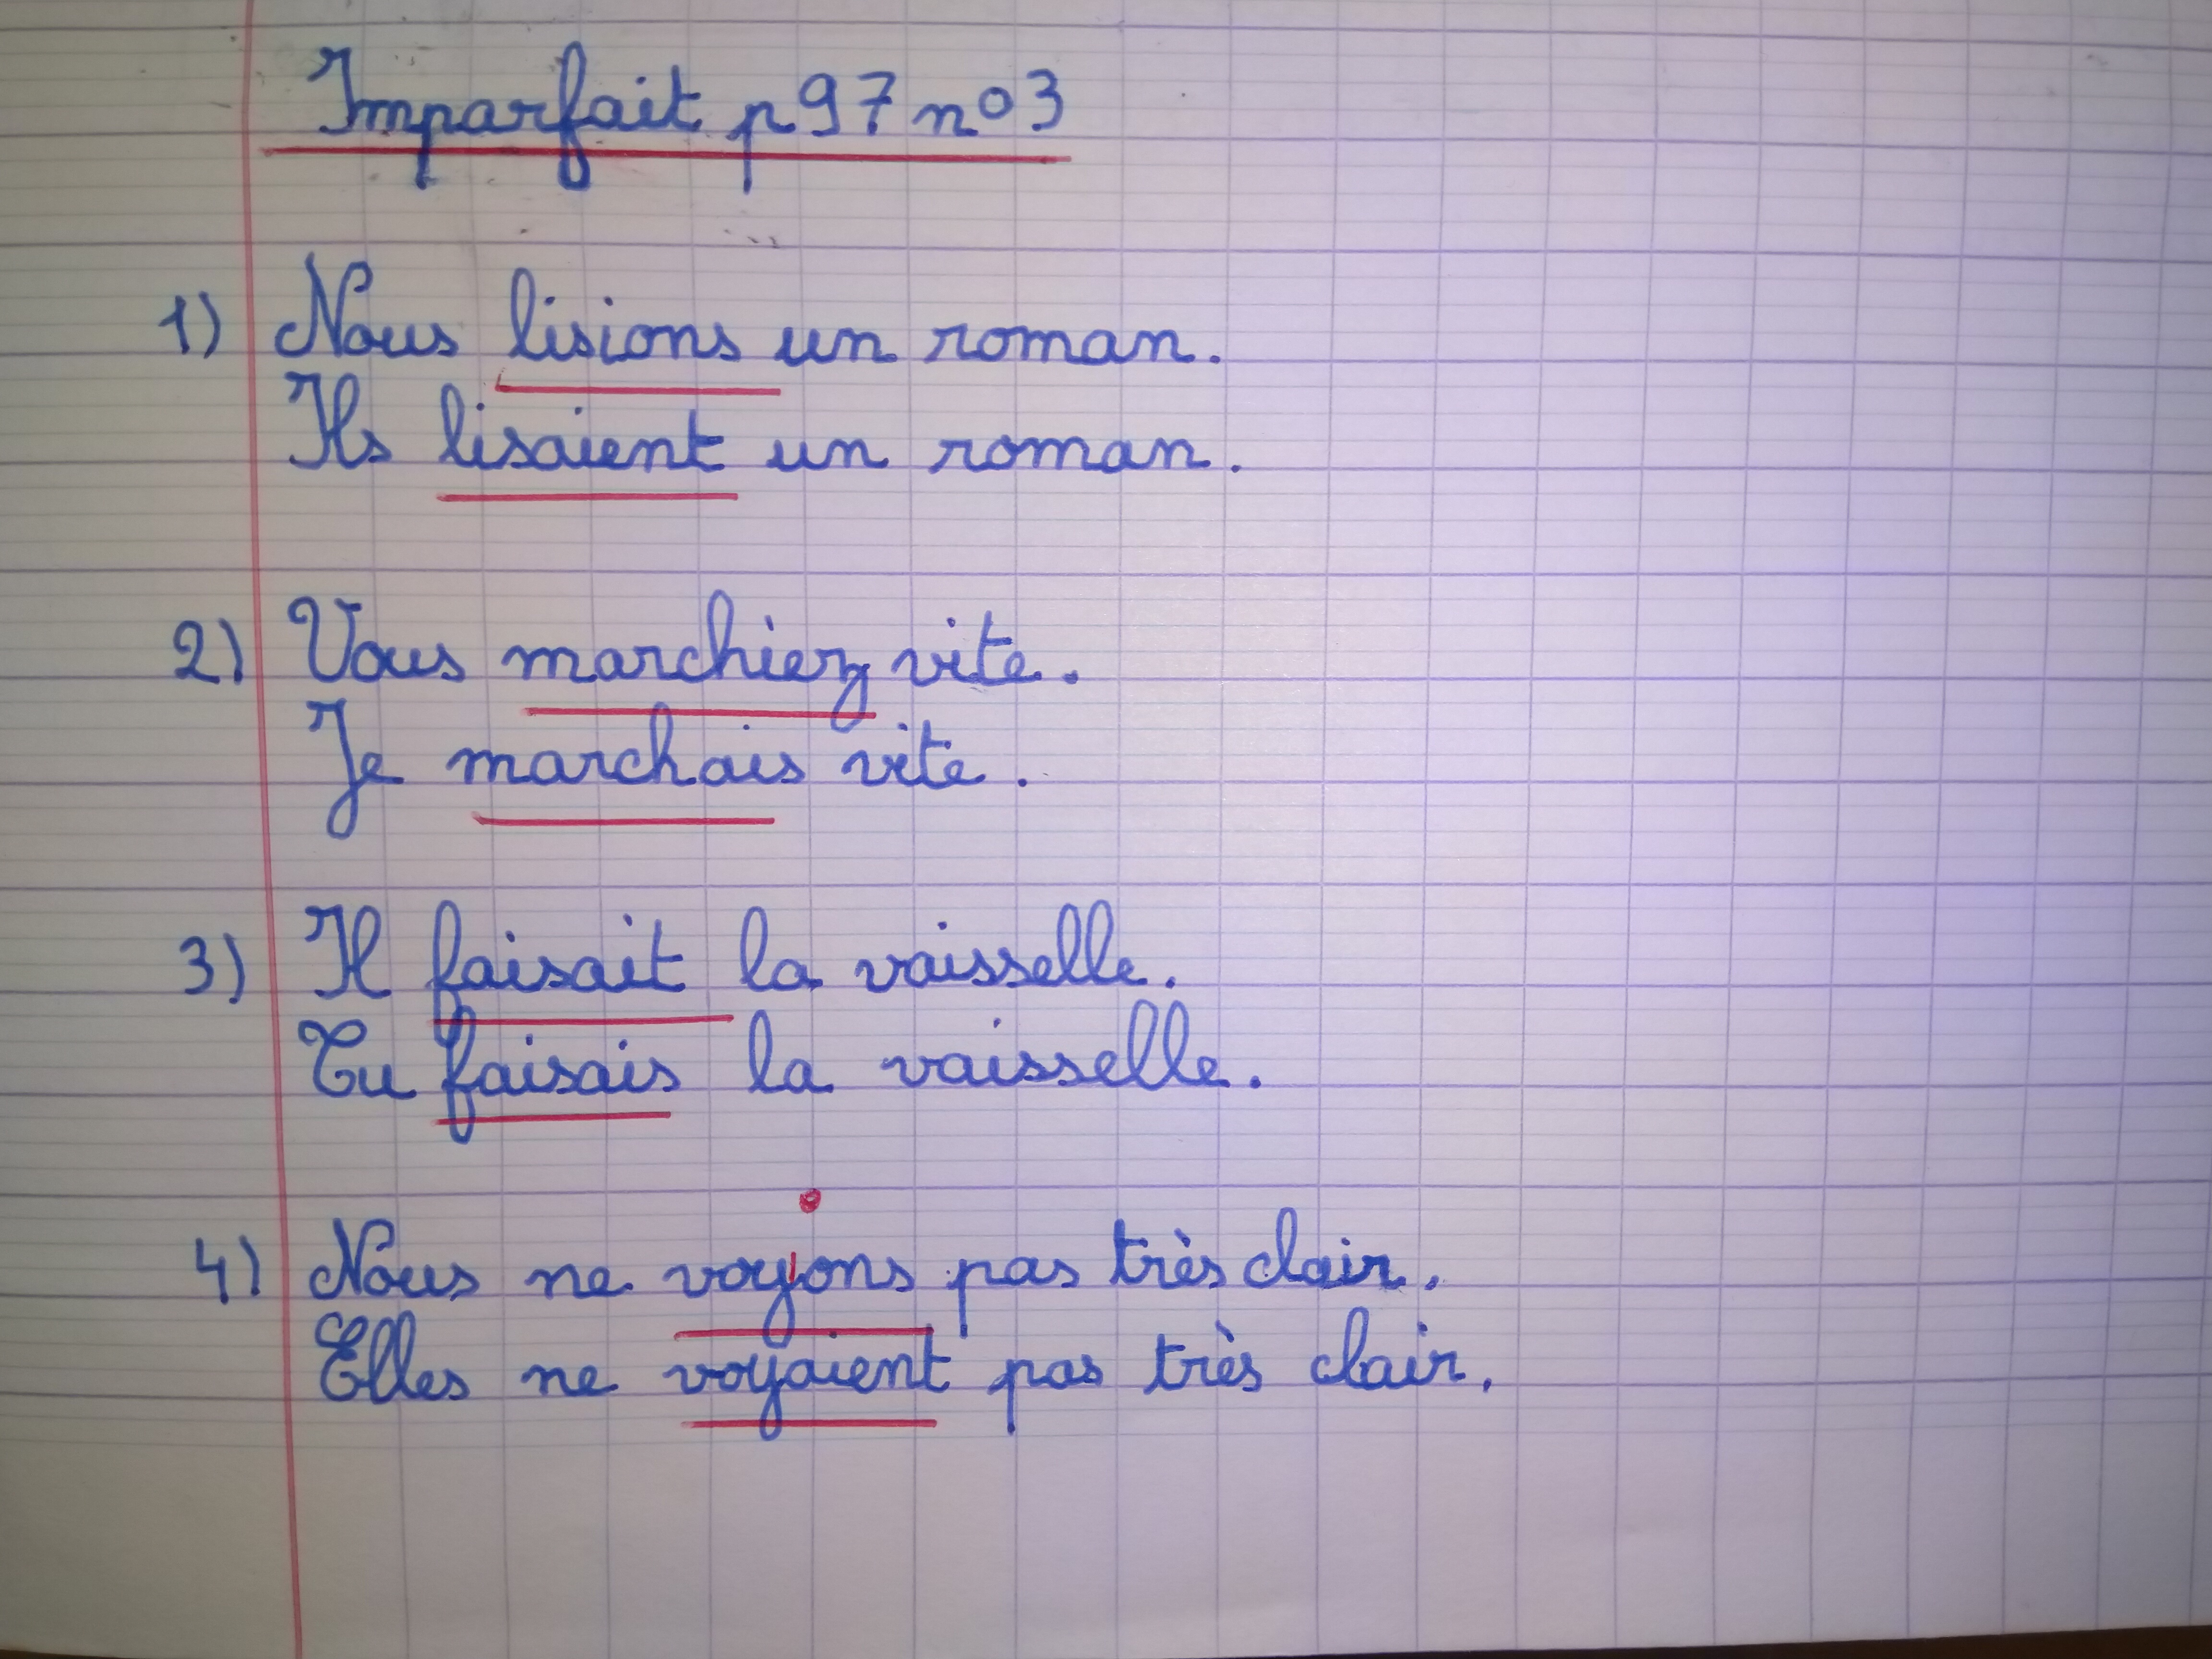 Imparfait p97 n°3
1) Nous lisions un roman.
Ils lisaient un roman.
2) Vous marchiez vite.
Je marchais vite.
3) Il faisait la vaisselle.
Tu faisais la vaisselle.
4) Nous ne voyions pas très clair.
Elles ne voyaient pas très clair.